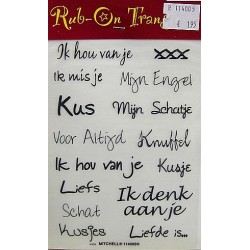 Rub-On Tran
R 114009
€ 1.95
Ik hou van je
XXX
Ik mis je
Mijn Engel
Kus
Mijn Schatje
Voor Altijd
Knuffel
Ik hou van je
Kusje
Liefs
Ik denk
aan je
Schat
Kusjes
Liefde is...
MITCHELL® 114009